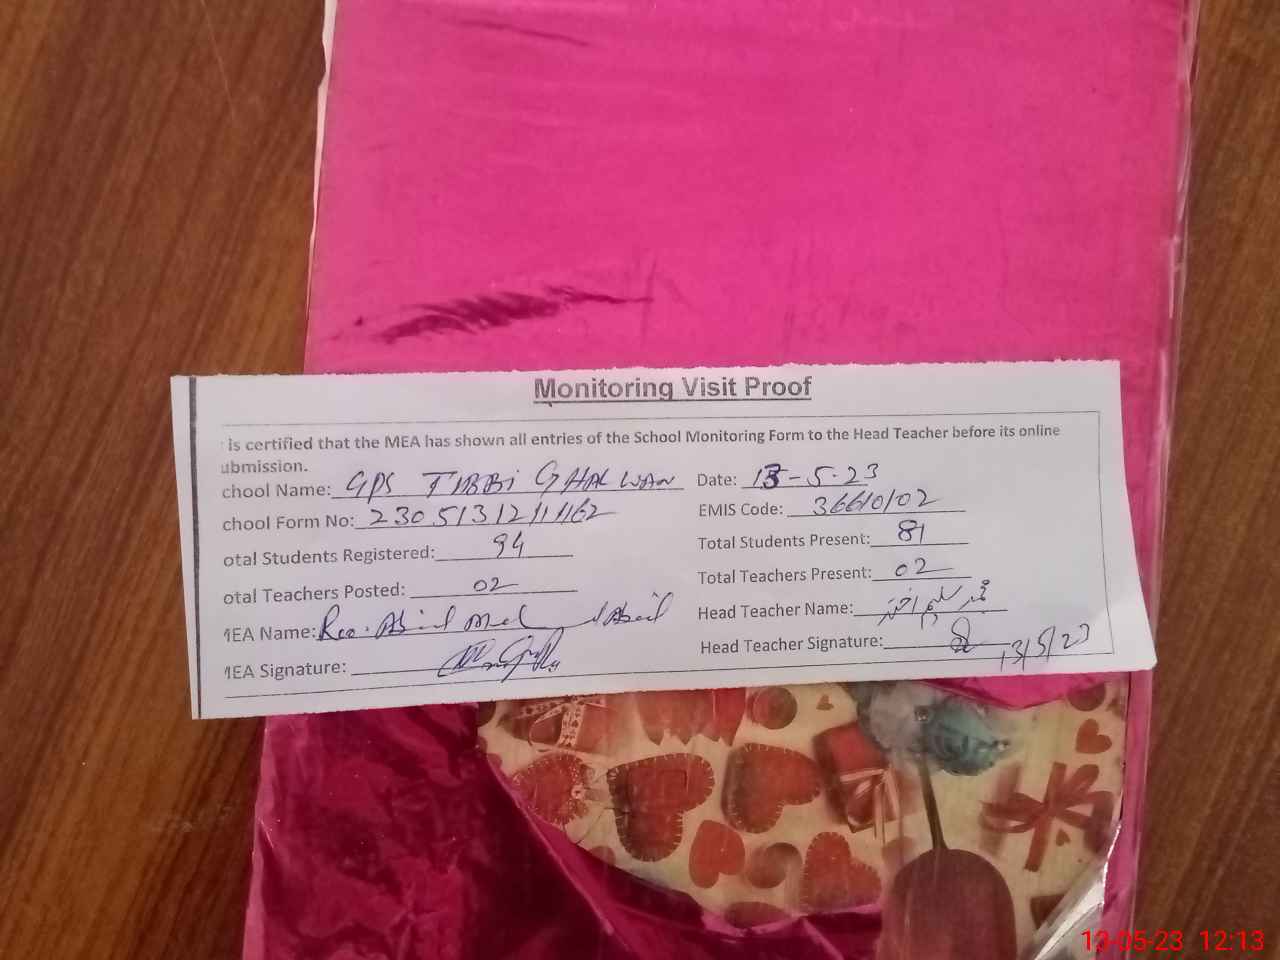 Monitoring Visit Proof
is certified that the MEA has shown all entries of the School Monitoring Form to the Head Teacher before its online
ubmission.
chool Name: GPS TIBBI GHALWAN Date: 13-5-23
chool Form No: EMIS Code: 36610102
otal Students Registered: 94 Total Students Present: 81
otal Teachers Posted: 02 Total Teachers Present: 02
MEA Name: Head Teacher Name:
MEA Signature: Head Teacher Signature: 13/5/23
13-05-23 12:13